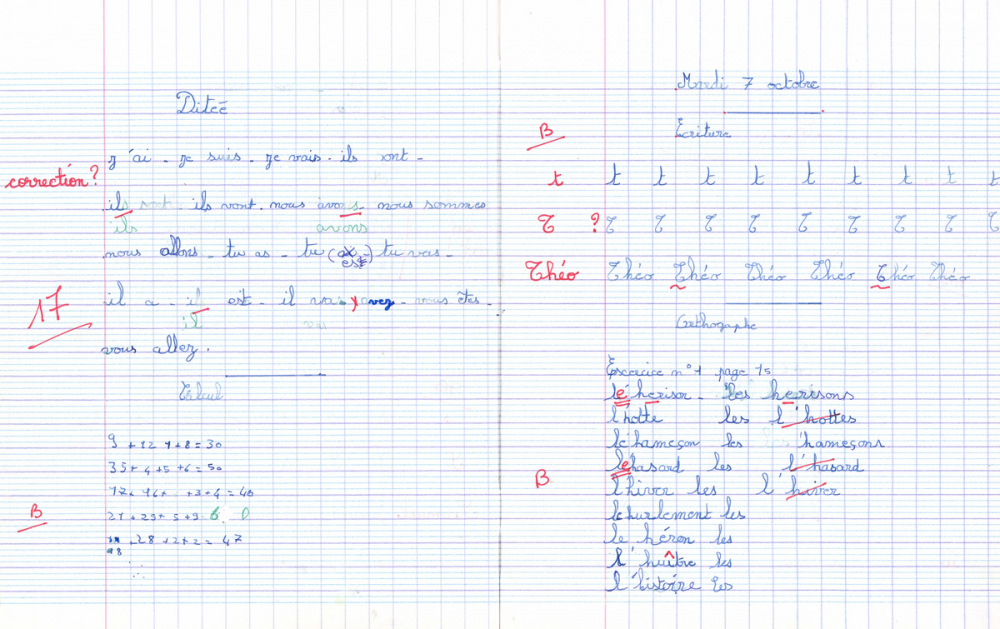 Dictée
j'ai - je suis - je vais - ils sont -
correction?
ils sont - ils vont - nous avons - nous sommes
ils avons
nous allons - tu as - tu ( es ) tu vas -
17
il a - il est - il vas avez - vous êtes -
il vas
vous allez.
Calcul
9 + 12 + 8 = 30
35 + 4 + 5 + 6 = 50
17 + 16 + + 3 + 4 = 40
B
21 + 29 + 5 + 9 6 0
+ 28 + 2 + 2 = 47
18
Mardi 7 octobre
B
Ecriture
t t t t t t t t t t
T ? T T T T T T T T T
Théo Théo Théo Théo Théo Théo Théo
Orthographe
Exercice n°1 page 15
le herison - les herisons
l'hotte les l'hottes
le hameçon les hameçons
le hasard les l'hasard
B
l'hiver les l'hiver
le hurlement les
le héron les
l'huître les
l'histoire les